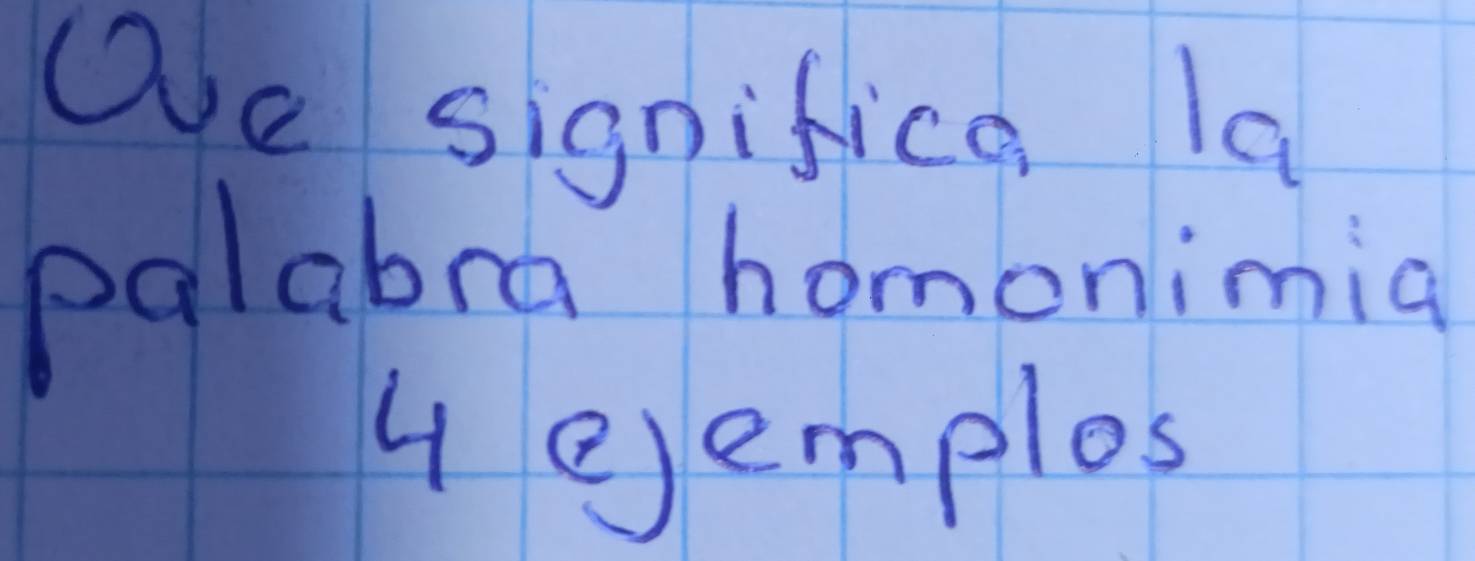 Que significa la
palabra homonimia
4 ejemplos